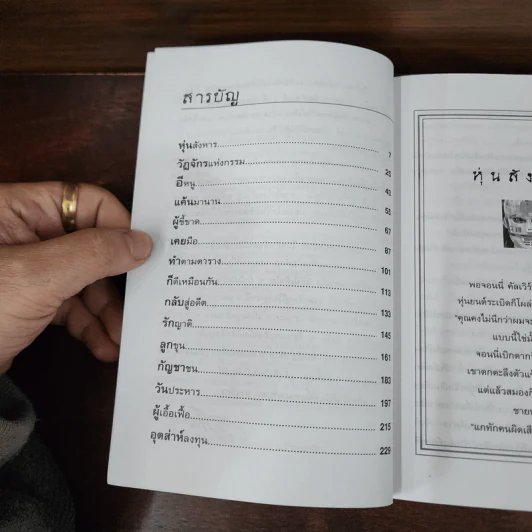 สารบัญ
หุ่นสังหาร 7
วัฏจักรแห่งกรรม 25
อีหนู 43
แค้นมานาน 55
ผู้ชี้ขาด 67
เคยมือ 87
ทำตามตาราง 101
ก็ดีเหมือนกัน 113
กลับสู่อดีต 133
รักญาติ 145
ลูกขุน 161
กัญชาชน 183
วันประหาร 197
ผู้เอื้อเฟื้อ 215
อุตส่าห์ลงทุน 229
หุ่นสัง
พอจอนนี่ คัลเวิร์
หุ่นยนต์ระเบิดก็โผล่
"คุณคงไม่นึกว่าผมจะ
แบบนี้ใช่มั้
จอนนี่เบิกตาก
เขาตกตะลึงตัวแ
แต่แล้วสมองก็
ชาย
"แกทักคนผิดเสี